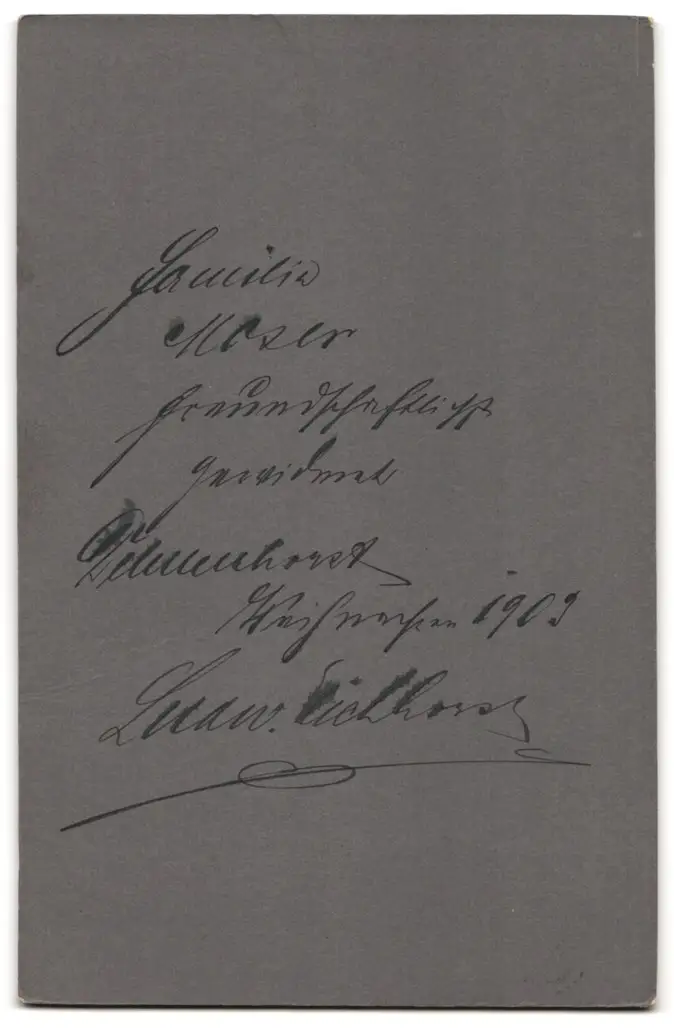 Familie
Moser
freundschaftlichst
gewidmet
Delmenhorst
Weihnachten 1903
Ludw. Eichhorst